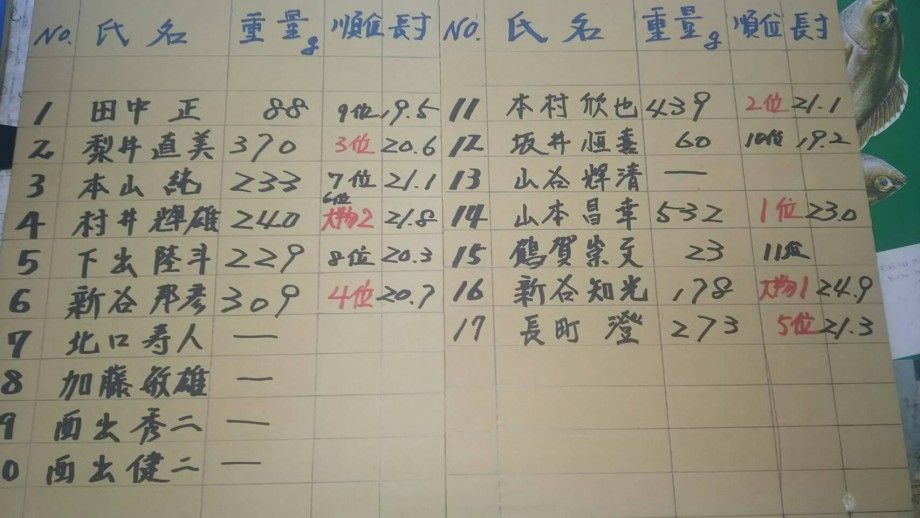 NO. 氏名 重量g 順位 長寸 NO. 氏名 重量g 順位 長寸
1 田中 正 88 9位 19.5 11 本村欣也 439 2位 21.1
2 梨井直美 370 3位 20.6 12 坂井恒喜 60 10位 19.2
3 本山 純 233 7位 21.1 13 山谷輝清 ー
4 村井輝雄 240 6位 大物2 21.8 14 山本昌幸 532 1位 23.0
5 下出陸斗 229 8位 20.3 15 鶴賀崇文 23 11位
6 新谷邦彦 309 4位 20.7 16 新谷知光 178 大物1 24.9
7 北口寿人 ー 17 長町 澄 273 5位 21.3
8 加藤敏雄 ー
9 西出秀二 ー
0 西出健二 ー